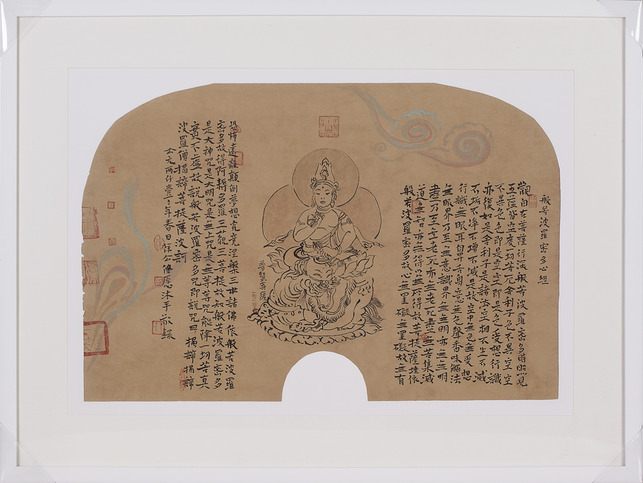 般若波羅密多心經
觀自在菩薩行深般若波羅密多時照見
五蘊皆空度一切苦厄舍利子色不異空空
不異色色即是空空即是色受想行識
亦復如是舍利子是諸法空相不生不滅
不垢不淨不增不減是故空中無色無受想
行識無眼耳鼻舌身意無色聲香味觸法
無眼界乃至無意識界無無明亦無無明
盡乃至無老死亦無老死盡無苦集滅
道無智亦無得以無所得故菩提薩埵依
般若波羅密多故心無罣礙無罣礙故無有
普賢菩薩
恐怖遠離顛倒夢想究竟涅槃三世諸佛依般若波羅
密多故得阿耨多羅三藐三菩提故知般若波羅密多
是大神咒是大明咒是無上咒是無等等咒能除一切苦真
實不虛故說般若波羅密多咒即說咒曰揭諦揭諦
波羅僧揭諦菩提薩婆訶
年春日
沐手敬錄